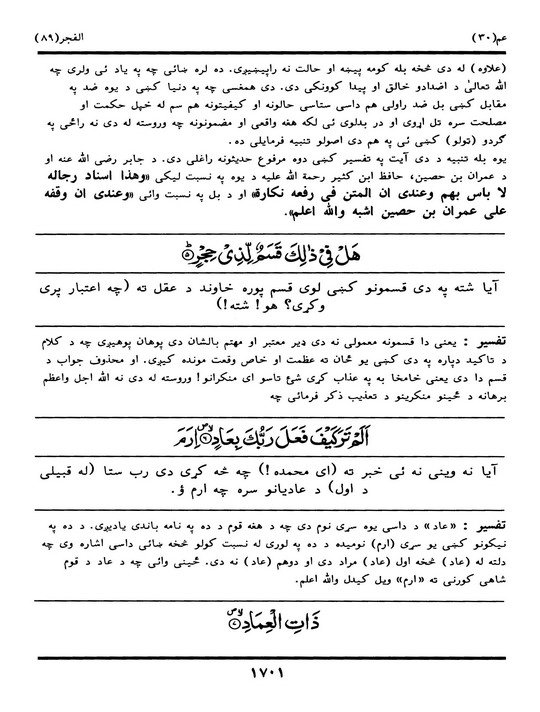 عم(٣٠) الفجر(٨٩)
(علاوه) له دی څخه بله کومه پیښه او حالت نه راپیښیږی. ده لره ښائی چه په یاد ئی ولری چه
الله تعالیٰ د اضدادو خالق او پیدا کوونکی دی. دی همغسی چه په دنیا کښی د یوه ضد په
مقابل کښی بل ضد راولی هم داسی ستاسی حالونه او کیفیتونه هم سم له خپل حکمت او
مصلحت سره تل اړوی او در بدلوی ئی لکه هغه واقعی او مضمونونه چه وروسته له دی نه راځی په
ګردو (ټولو) کښی ئی په هم دی اصولو تنبیه فرمایلی ده .
یوه بله تنبیه د دی آیت په تفسیر کښی دوه مرفوع حدیثونه راغلی دی. د جابر رضی الله عنه او
د عمران بن حصین، حافظ ابن کثیر رحمة الله علیه د یوه په نسبت لیکی «وهذا اسناد رجاله
لا باس بهم وعندی ان المتن فی رفعه نکارة» او د بل په نسبت وائی «وعندی ان وقفه
علی عمران بن حصین اشبه والله اعلم».
هَلْ فِيْ ذٰلِكَ قَسَمٌ لِّذِيْ حِجْرٍ ۵
آیا شته په دی قسمونو کښی لوی قسم پوره خاوند د عقل ته (چه اعتبار پری
وکړی؟ هو! شته!)
تفسیر : یعنی دا قسمونه معمولی نه دی ډیر معتبر او مهتم بالشان دی پوهان پوهیږی چه د کلام
د تاکید دپاره په دی کښی یو ځان ته عظمت او خاص وقعت مونده کیږی. او محذوف جواب د
قسم دا دی یعنی خامخا به په عذاب کړی شئ تاسو ای منکرانو! وروسته له دی نه الله اجل واعظم
برهانه د ځینو منکرینو د تعذیب ذکر فرمائی چه
اَلَمْ تَرَ كَيْفَ فَعَلَ رَبُّكَ بِعَادٍ ۶ اِرَمَ
آیا نه وینی نه ئی خبر ته (ای محمده!) چه څه کړی دی رب ستا (له قبیلی
د اول) د عادیانو سره چه ارم ؤ.
تفسیر : «عاد» د داسی یوه سړی نوم دی چه د هغه قوم د ده په نامه باندی یادیږی. د ده په
نیکونو کښی یو سړی (ارم) نومیده د ده په لوری له نسبت کولو څخه ښائی داسی اشاره وی چه
دلته له (عاد) څخه اول (عاد) مراد دی او دوهم (عاد) نه دی. ځینی وائی چه د عاد د قوم
شاهی کورنی ته «ارم» ویل کیدل والله اعلم.
ذَاتِ الْعِمَادِ ۷
١٧٠١